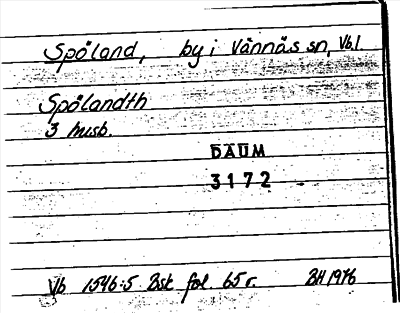 Spöland, by i Vännäs sn, Vb.l.
Spölandth
3 husb.
DAUM
3172
Vb 1546:5 Bsk fol. 65 r. BH 1976